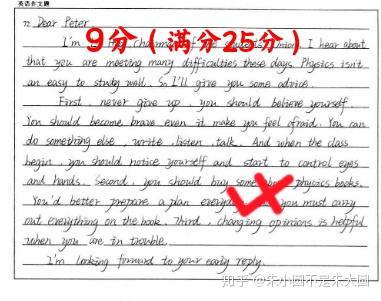 英语作文题
72 Dear Peter
I'm the chairman of the Student Union. I hear about
9分（满分25分）
that you are meeting many difficulties these days. Physics isn't
an easy to study well. So I'll give you some advice.
First, never give up, you should believe yourself.
You should become brave even it make you feel afraid. You can
do something else, write, listen, talk. And when the class
begin, you should notice yourself and start to control eyes
and hands. Second, you should buy some physics books.
You'd better prepare a plan everyday you must carry
out everything on the book. Third, changing opinions is helpful
when you are in trouble.
I'm looking forward to your early reply.
知乎 @朱小圆不是朱大圆